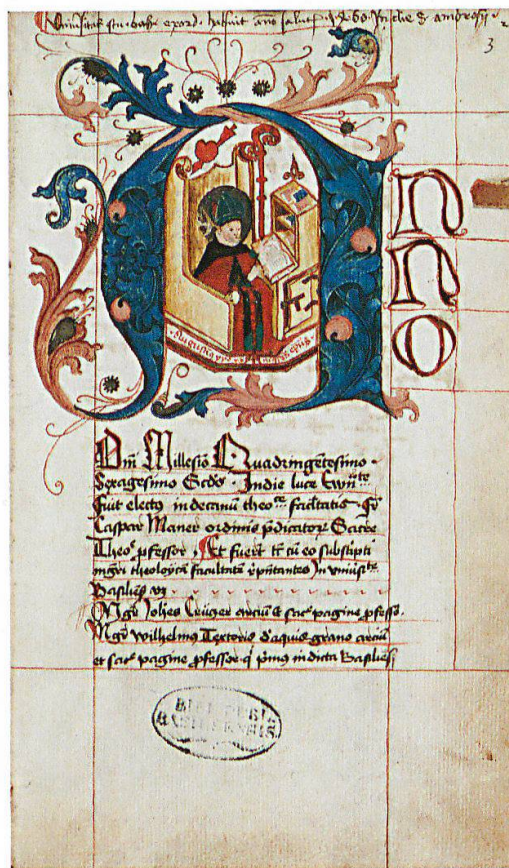 Universitas stu. basiƚ. exord. habuit año saluƚ 1460 In die s. ambrosij
3
Anno
Augustinus ep̄us
Dñi Millesiō Quadringētesimo
Sexagesimo Scdo Indie luce ewn̄te
fuit electꝰ in decanū theo facƚtatis Fr̄
Caspar Maner ordinis p̄dicatorꝝ Sacre
Theoᵉ ꝓfessor Et fuerūt tc̄ cū eo subscripti
mgr̄i theoloycā facultatē rep̄ntantes In vniuste
Basilieñ vꝫ
Mgr̄ Joħes Crüger arciū & sac pagine ꝓfesso.
Mgr̄ wilhelmꝰ Textoris d'aquisgrano arciū
et sac pagine ꝓfessor q p̄mꝰ in dicta Basilieñ
BIBL. PUBL.
BASILEENSIS.